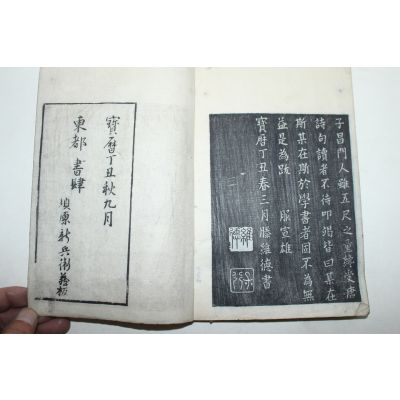 子昌門人雖五尺之童繙受唐
詩句讀者不待叩弼皆曰某在
斯某在斯於學書者固不為無
益是為跋　服宣雄
寶曆丁丑春三月滕維德書
寶曆丁丑秋九月
東都 書肆
須原新兵衛藏板